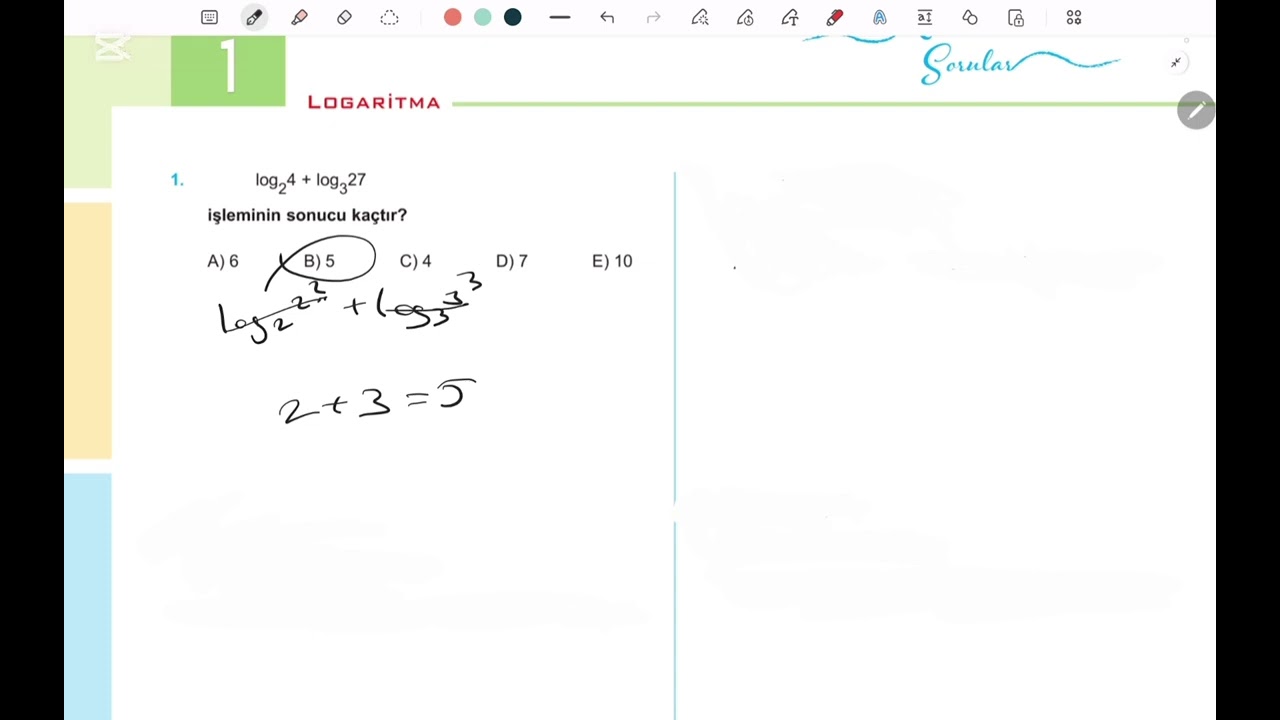 1
Sorular
LOGARİTMA
1. log₂4 + log₃27
işleminin sonucu kaçtır?
A) 6 B) 5 C) 4 D) 7 E) 10
log₂2² + log₃3³
2 + 3 = 5